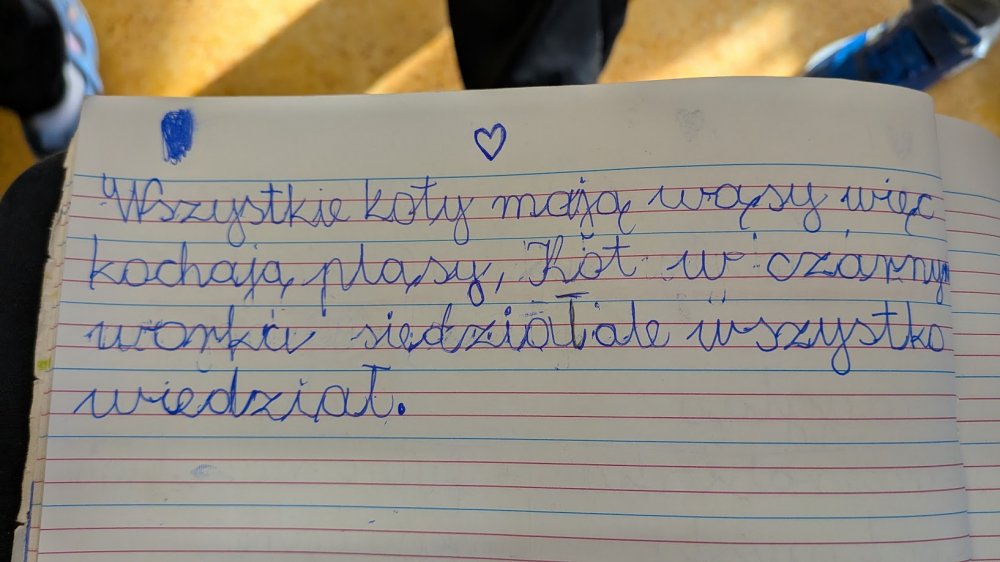 Wszystkie koty mają wąsy więc
kochają pląsy, Kot w czarnym
worku siedział ale wszystko
wiedział.